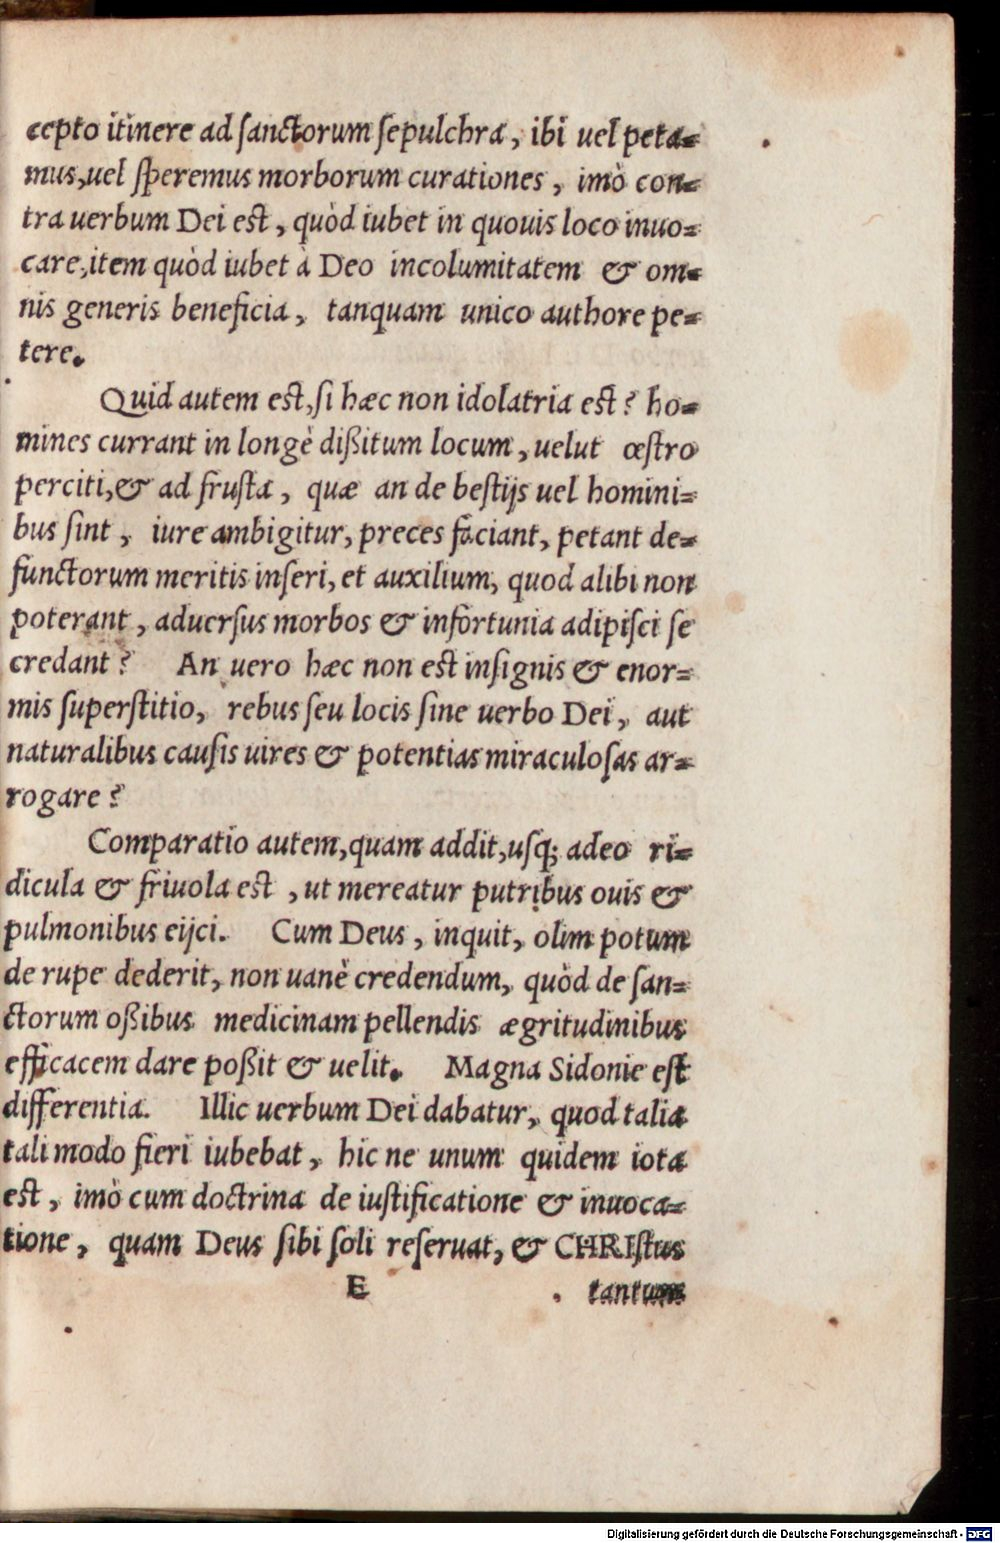 cepto itinere ad ſanctorum ſepulchra, ibi uel peta=
mus, uel ſperemus morborum curationes, imò con=
tra uerbum Dei est, quòd iubet in quouis loco inuo=
care, item quòd iubet à Deo incolumitatem & om=
nis generis beneficia, tanquam unico authore pe=
tere.
Quid autem est, ſi hæc non idolatria est? ho=
mines currant in longè dißitum locum, uelut œſtro
perciti, & ad fruſta, quæ an de beſtijs uel homini=
bus ſint, iure ambigitur, preces faciant, petant de=
functorum meritis inſeri, et auxilium, quod alibi non
poterant, aduerſus morbos & infortunia adipiſci ſe
credant? An uero hæc non est inſignis & enor=
mis ſuperſtitio, rebus ſeu locis ſine uerbo Dei, aut
naturalibus cauſis uires & potentias miraculoſas ar=
rogare?
Comparatio autem, quam addit, uſq; adeo ri=
dicula & friuola est, ut mereatur putribus ouis &
pulmonibus eijci. Cum Deus, inquit, olim potum
de rupe dederit, non uanè credendum, quòd de ſan=
ctorum oßibus medicinam pellendis ægritudinibus
efficacem dare poßit & uelit. Magna Sidonie est
differentia. Illic uerbum Dei dabatur, quod talia
tali modo fieri iubebat, hic ne unum quidem iota
est, imò cum doctrina de iuſtificatione & inuoca=
tione, quam Deus ſibi ſoli reſeruat, & CHRIſtus
E tantum
Digitalisierung gefördert durch die Deutsche Forschungsgemeinschaft - DFG